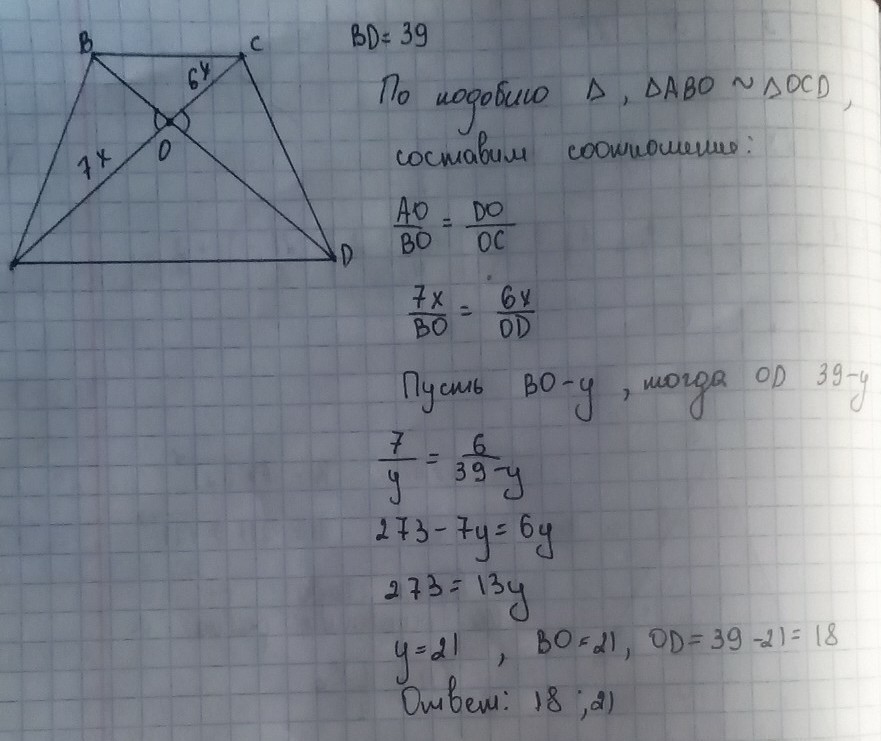 B
C
6x
7x
O
D
BD = 39
По подобию Δ, ΔABO ~ ΔOCD,
составим соотношение:
AO/BO = DO/OC
7x/BO = 6x/OD
Пусть BO - y, тогда OD 39-y
7/y = 6/39-y
273 - 7y = 6y
273 = 13y
y = 21 , BO = 21, OD = 39 - 21 = 18
Ответ: 18 ; 21